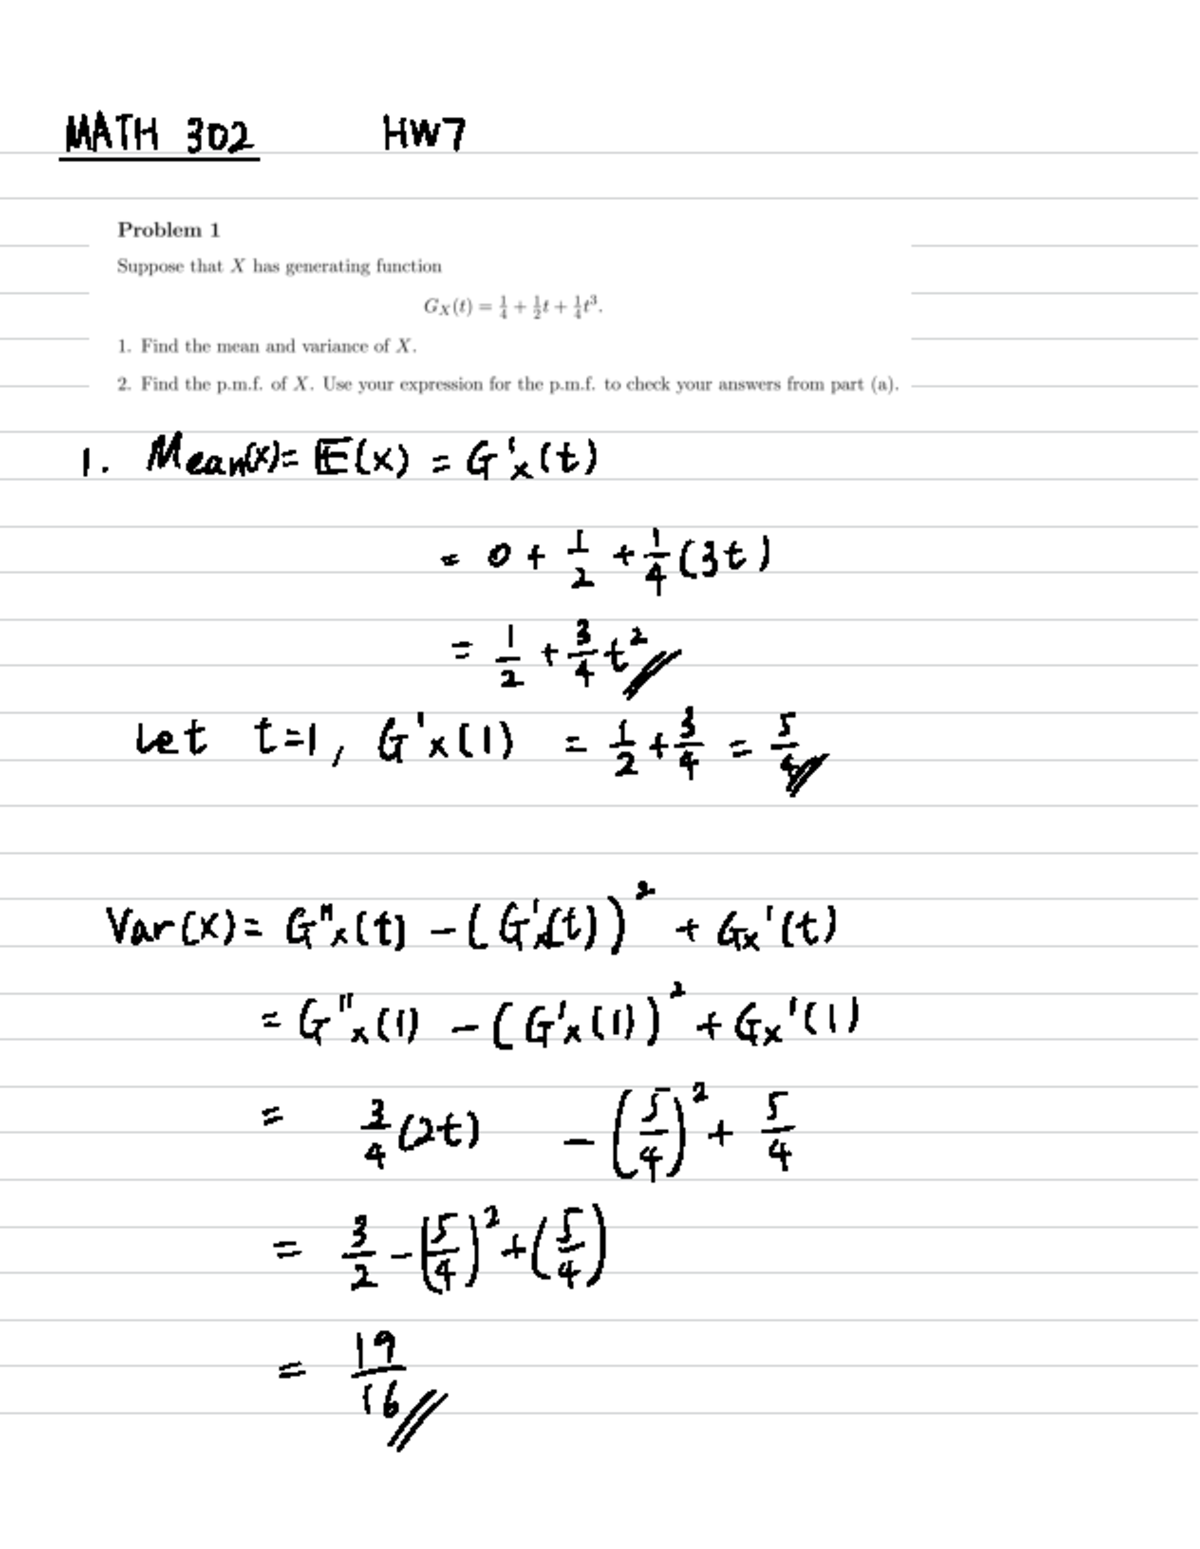 MATH 302 HW7
Problem 1
Suppose that X has generating function
G_X(t) = 1/4 + 1/2 t + 1/4 t³.
1. Find the mean and variance of X.
2. Find the p.m.f. of X. Use your expression for the p.m.f. to check your answers from part (a).
1. Mean(x) = E(x) = G'x(t)
= 0 + 1/2 + 1/4 (3t)
= 1/2 + 3/4 t² //
Let t=1, G'x(1) = 1/2 + 3/4 = 5/4 //
Var(x) = G"x(t) - (G'x(t))² + Gx'(t)
= G"x(1) - (G'x(1))² + Gx'(1)
= 3/4 (2t) - (5/4)² + 5/4
= 3/2 - (5/4)² + (5/4)
= 19/16 //